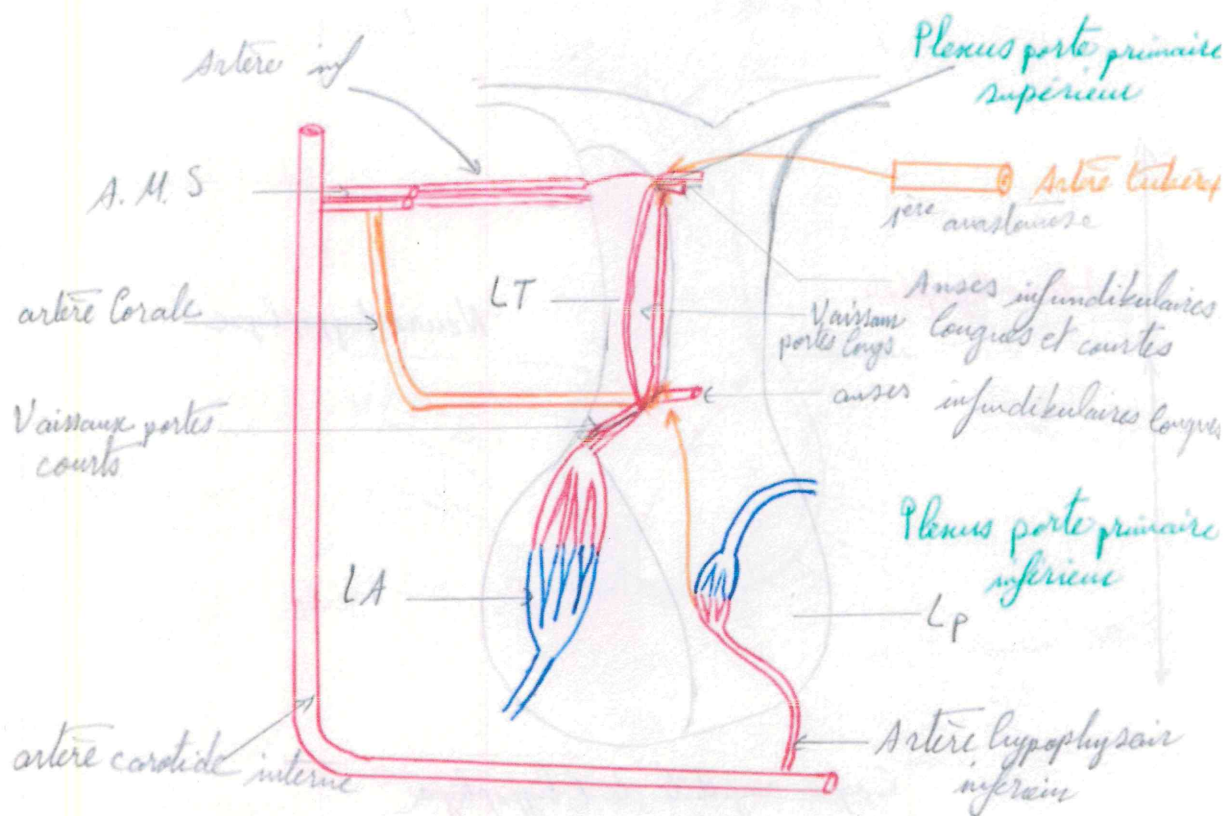 Artère inf
Plexus porte primaire
supérieur
A.M.S
Artère tubér
1ère anastomose
artère Lorale
LT
Vaissau
portes longs
Anses infundikulaires
longues et courtes
anses infundikulaires longues
Vaissaux portes
courts
Plexus porte primaire
inférieur
LA
Lp
artère carotide interne
Artère hypophysair
inférieur